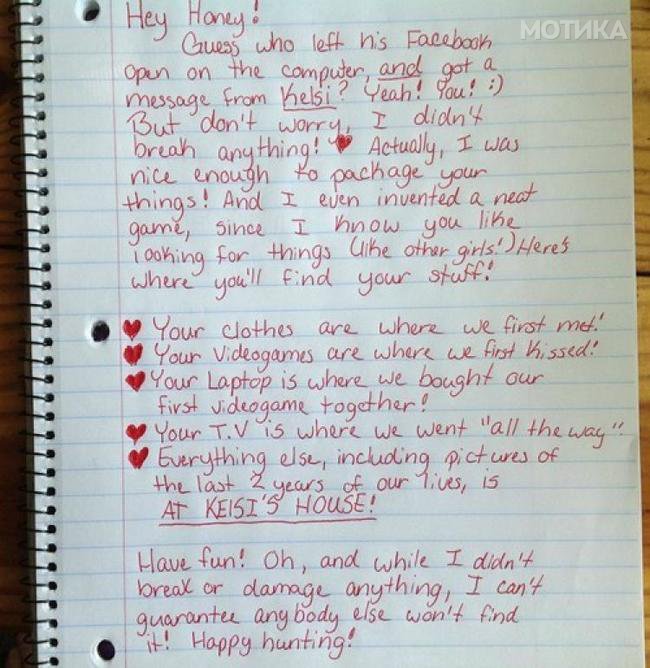 МОТИКА
Hey Honey!
Guess who left his Facebook
open on the computer, and got a
message from Kelsi? Yeah! You! :)
But don't worry, I didn't
break anything! ♥ Actually, I was
nice enough to package your
things! And I even invented a neat
game, since I know you like
looking for things (like other girls!) Here's
where you'll find your stuff!
♥ Your clothes are where we first met!
♥ Your videogames are where we first kissed!
♥ Your Laptop is where we bought our
first videogame together!
♥ Your T.V is where we went "all the way".
♥ Everything else, including pictures of
the last 2 years of our lives, is
AT KElSI'S HOUSE!
Have fun! Oh, and while I didn't
break or damage anything, I can't
guarantee anybody else won't find
it! Happy hunting!